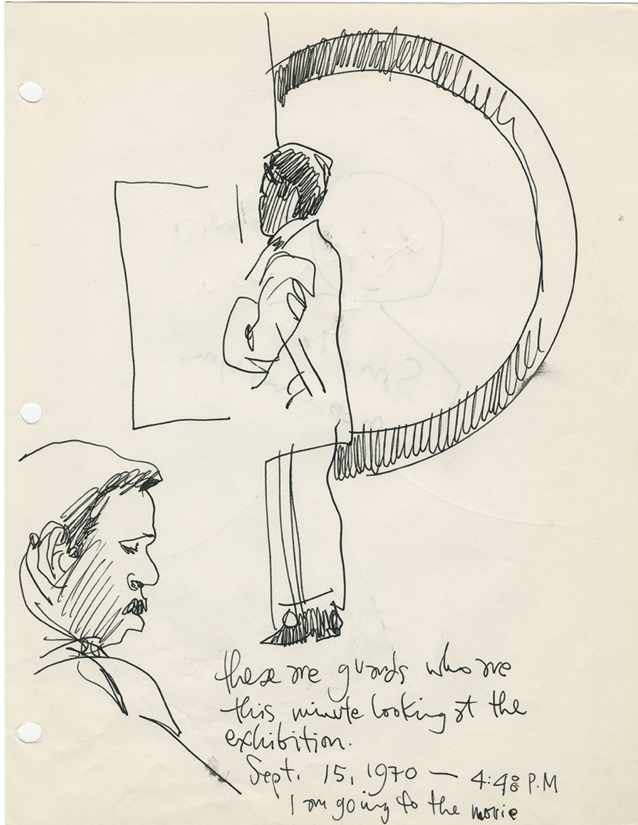 these are guards who are
this minute looking at the
exhibition.
Sept. 15, 1970 — 4:48 P.M
I am going to the movie